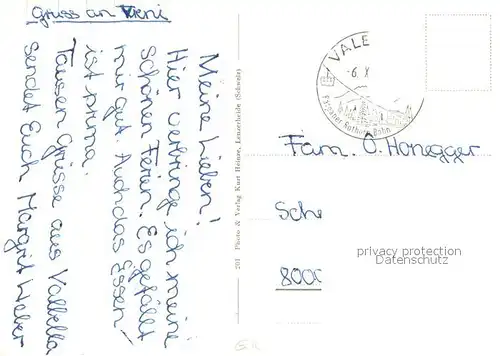 Gruss an Vreni
Meine Lieben!
Hier verbringe ich meine
schönen Ferien. Es gefällt
mir gut. Auch das Essen
ist prima.
Tausen Grüsse aus Valbella
sendet Euch Margrit Weber
201 Photo & Verlag Kurt Heinze, Lenzerheide (Schweiz)
VALE
-6. X
Parpaner Rothorn-Bahn
Fam. O. Honegger
Sch
8000
privacy protection
Datenschutz